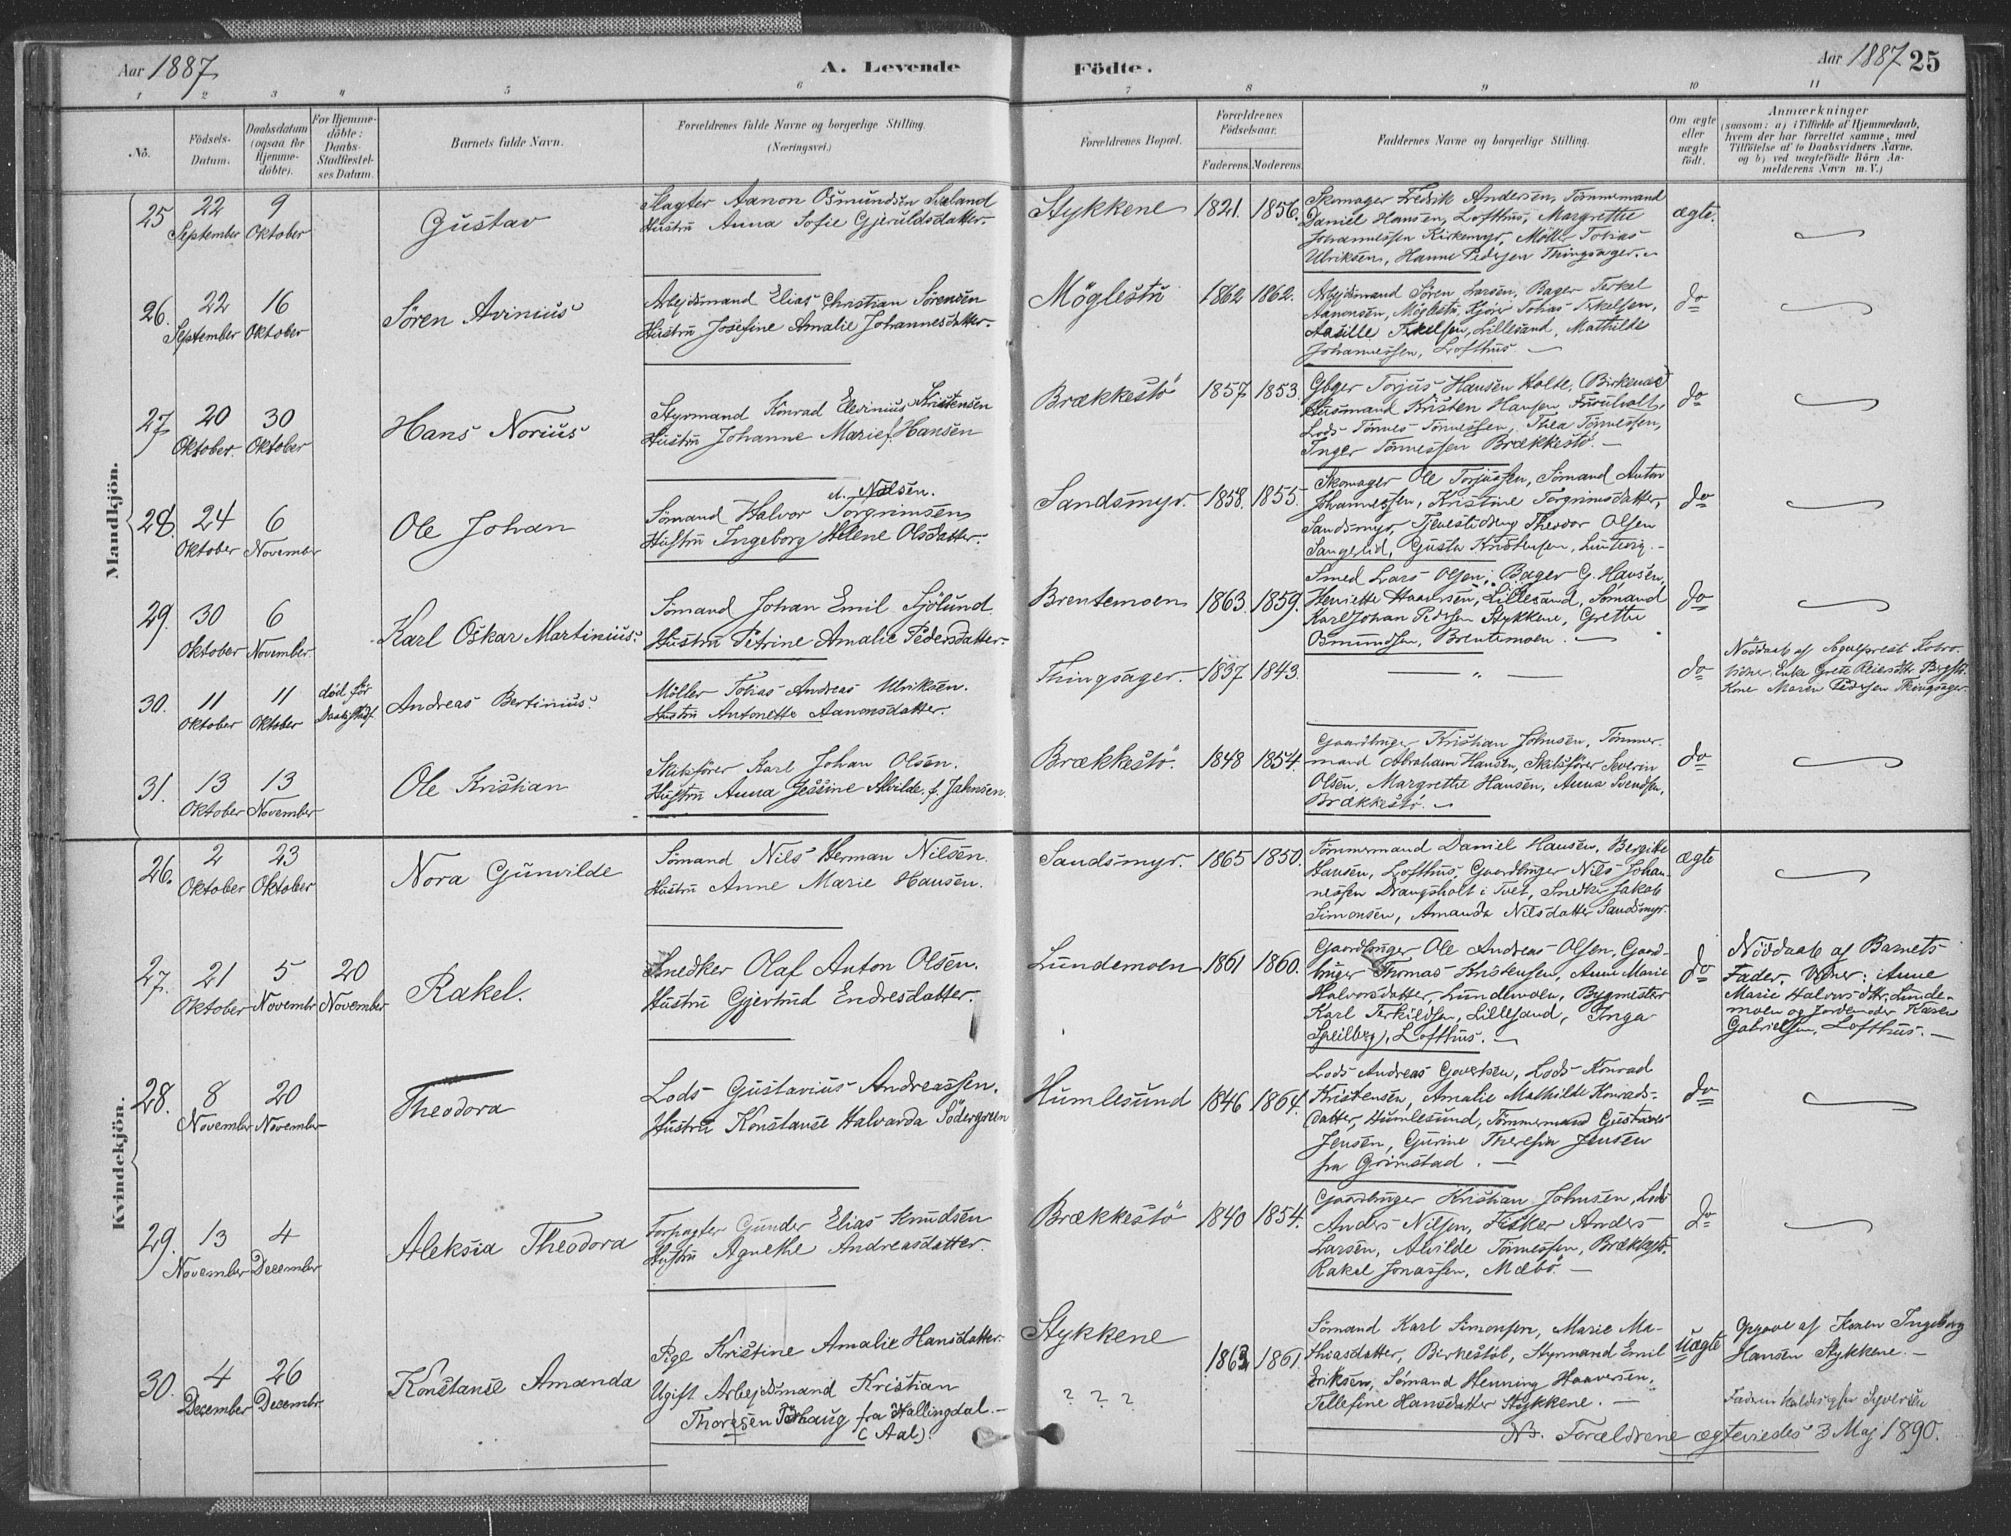 Aar 1887.
A. Levende Födte.
Aar 1887 25
1 2 3 4 5 6 7 8 9 10 11
No.
Födsels-Datum.
Daabsdatum (ogsaa for Hjemmedöbte).
For Hjemmedöbte: Daabs-Stadfæstelses Datum.
Barnets fulde Navn.
Forældrenes fulde Navne og borgerlige Stilling. (Næringsvei.)
Forældrenes Bopæl.
Forældrenes Födselsaar.
Faderens. Moderens.
Faddernes Navne og borgerlige Stilling.
Om ægte eller uægte födt.
Anmærkninger
(saasom: a) i Tilfælde af Hjemmedaab, hvem der har forrettet samme, med Tilföielse af to Daabsvidners Navne. og b) ved uægtefödte Börn Anmelderens Navn m. V.)
Mandkjön.
25 22 September 9 Oktober Gustav
Slagter Aanon Osmundsen Sæland
Hustru Anna Sofie Gjeruldsdatter.
Stykkene 1821. 1856.
Skomager Fredrik Andersen, Tömmermand
Daniel Hansen, Lofthus, Margrethe
Johannessen Kirkemyr, Möller Tobias
Ulriksen, Hanne Pedersen Thingsager.
ægte.
26. 22 September 16 Oktober Sören Avinius
Arbejdsmand Elias Christian Sörensen
Hustru Josefine Amalie Johannesdatter.
Möglestu 1862 1862.
Arbejdsmand Sören Larsen, Bager Terkel
Aanonsen, Möglestu, Tobias Terkelsen,
Terkelsen, Lillesand, Mathilde
Johannessen, Lofthus.
do
27. 20 Oktober 30 Oktober Hans Norius
Styrmand Konrad Elevinius Kristensen
Hustru Johanne Marie f. Hansen
Brækkestö 1857 1853.
Gbger Torjus Hansen Holte, Birkenæs
Husmand Kristen Hansen Furuholt,
Lods Tönnes Tönnessen, Thea Tönnessen,
Inger Tönnessen Brækkestö.
do
28. 24 Oktober 6 November Ole Johan
Nilsen.
Sömand Halvor Torgrimsen
Hustru Ingeborg Helene Olsdatter.
Sandsmyr. 1858. 1855.
Skomager Ole Torjussen, Sömand Anton
Johannessen, Kristine Torgrimsdatter,
Sandsmyr, Theodor Olsen
Gusta Kristensen,
do
29. 30 Oktober 6 November Karl Oskar Martinius.
Sömand Johan Emil Sjölund
Hustru Petrine Amalie Pedersdatter.
Brentemoen 1863. 1859.
Smed Lars Olsen, Bager G. Hansen,
Henriette Haavorsen, Lillesand, Sömand
Karl Johan Pedersen Stykkene, Grethe
Osmundsen, Brentemoen.
do
30. 11 Oktober 11 Oktober död för Daabsstadf. Andreas Bertinius.
Möller Tobias Andreas Ulriksen.
Hustru Antonette Aanonsdatter.
Thingsager. 1837 1843.
— „ —
do
Nöddaab af Sogneprest
Vidner: Enke Grete Reiersdtr
Kone Maren Pedersen Thingsager.
31. 13 Oktober 13 November Ole Kristian
Skibsförer Karl Johan Olsen.
Hustru Anna Jessine Alvilde f. Jahnsen.
Brækkestö. 1848 1854.
Gaardbruger Kristian Johnsen, Tömmer-
mand Abraham Hansen, Skibsförer Severin
Olsen, Margrethe Hansen, Anna Svendsen,
Brækkestö.
do
Kvindekjön.
26. 2 Oktober 23 Oktober Nora Gunvilde
Sömand Nils Herman Nilsen.
Hustru Anne Marie Hansen.
Sandsmyr. 1865 1850.
Tömmermand Daniel Hansen, Bergitte
Hansen, Lofthus, Gaardbruger Nils Johan-
nessen Drangsholt i Tvet, Snedker Jakob
Simonsen, Amanda Nilsdatter Sandsmyr.
ægte
27. 21 Oktober 5 November 20 November Rakel.
Snedker Olaf Anton Olsen.
Hustru Gjertrud Endresdatter.
Lundemoen 1861 1860.
Gaardbruger Ole Andreas Olsen, Gaard-
bruger Thomas Kristensen, Anne Marie
Halvorsdatter, Lundemoen, Bygmester
Karl Terkildsen, Lillesand, Inga
Speilberg, Lofthus.
do
Nöddaab af Barnets
Fader, Vidner: Anne
Marie Halvorsdtr. Lunde-
moen og Jordemoder Karen
Gabrielsen, Lofthus.
28. 8 November 20 November Theodora
Lods Gustavius Andreassen.
Hustru Konstanse Halvarda Södergreen
Humlesund 1846 1864.
Lods Andreas Govertsen, Lods Konrad
Kristensen, Amalie Mathilde Konrads-
datter, Humlesund, Tömmermand Gustav
Jensen, Gurine Theresia Jensen
fra Grimstad.
do
29. 13 November 4 December Aleksia Theodora
Forpagter Gunder Elias Knudsen
Hustru Agnethe Andreasdatter.
Brækkestö 1840 1854.
Gaardbruger Kristian Johnsen, Lods
Anders Nilsen, Fisker Anders
Larsen, Alvilde Tönnessen, Brækkestö.
Rakel Jonassen, Mæbö.
do
30. 4 December 26 December Konstanse Amanda
Pige Kristine Amalie Hansdatter
Ugift Arbejdsmand Kristian
Thoresen Torhaug fra Hallingdal.
(Aal).
Stykkene
? ? ?
1863 1861.
Sömand Karl Simonsen, Marie Ma-
thiasdatter, Birkestöl, Styrmand Emil
Eriksen, Sömand Henning Haaversen,
Tellefine Hansdatter Stykkene.
uægte
Opgave af Konen Ingeborg
Hansen Stykkene.
Nb. Forældrene ægteviedes 3 Maj 1890.